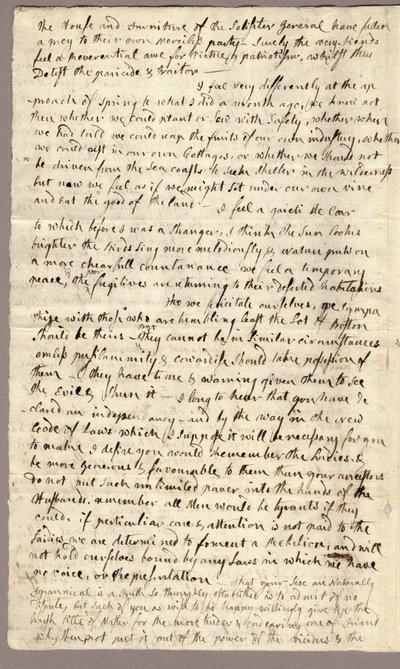 the House and Furniture of the Solisiter General have fallen
a prey to their own merciless party. Surely the very Fiends
feel a Reverential awe for Virtue & patriotism, whilst they
Detest the paricide & traitor —
I feel very differently at the ap
proach of Spring to what I did a month ago, we knew not
then whether we could plant or sow with safety, whether when
we had toild we could reap the fruits of our own industery, whether
we could rest in our own Cottages, or whether we should not
be driven from the Sea coasts to seek shelter in the wilderness
but now we feel as if we might sit under our own vine
and eat the good of the land — I feel a gaieti de Coar
to which before I was a stranger, I think the Sun looks
brighter the Birds sing more melodiously, & Nature puts on
a more chearfull countanance we feel a temporary
peace, & the poor fugitives are returning to their deserted habitations
Tho we felicitate ourselves, we sympa
thize with those who are trembling least the Lot of Boston
should be theirs — they cannot be in similar circumstances
unless pusilanimity & cowardise should take possession of
them — they have time & warning given them to see
the Evil & shun it — I long to hear that you have de
clared an independancy — and by the way in the new
Code of Laws which I suppose it will be necessary for you
to make I desire you would Remember the Ladies, &
be more generous & favourable to them than your ancestors
Do not put such unlimited power into the hands of the
Husbands. remember all Men would be tyrants if they
could. if perticuliar care & attention is not paid to the
Ladies we are determined to foment a Rebelion, and will
not hold ourselves bound by any Laws in which we have
no voice, or Representation — That your Sex are Naturally
Tyrannical is a Truth so throughly established as to admit of no
Dispute, but such of you as wish to be happy willingly give up the
harsh title of Master for the more tender & endearing one of Friend
Why then, not put it out of the power of the vicious & the